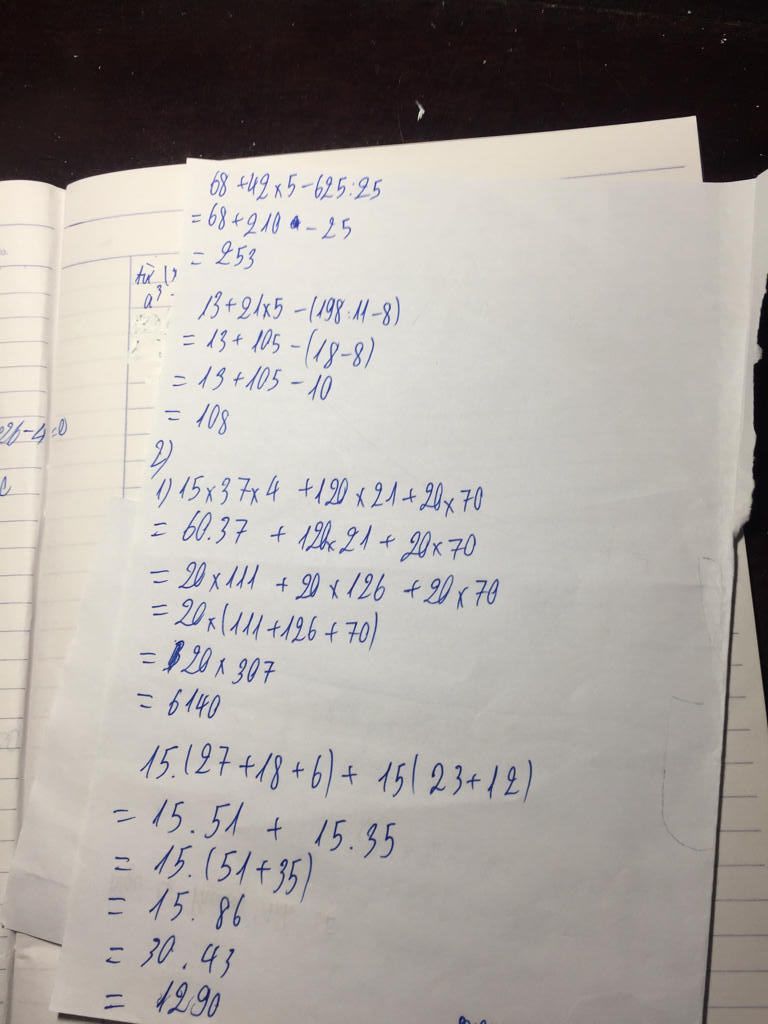 68 + 42 x 5 - 625 : 25
= 68 + 210 - 25
= 253
13 + 21 x 5 - (198 : 11 - 8)
= 13 + 105 - (18 - 8)
= 13 + 105 - 10
= 108
2)
1) 15 x 37 x 4 + 120 x 21 + 20 x 70
= 60.37 + 120 x 21 + 20 x 70
= 20 x 111 + 20 x 126 + 20 x 70
= 20 x (111 + 126 + 70)
= 20 x 307
= 6140
15.(27 + 18 + 6) + 15(23 + 12)
= 15.51 + 15.35
= 15.(51 + 35)
= 15.86
= 30.43
= 1290
a³
2b - 4 = 0